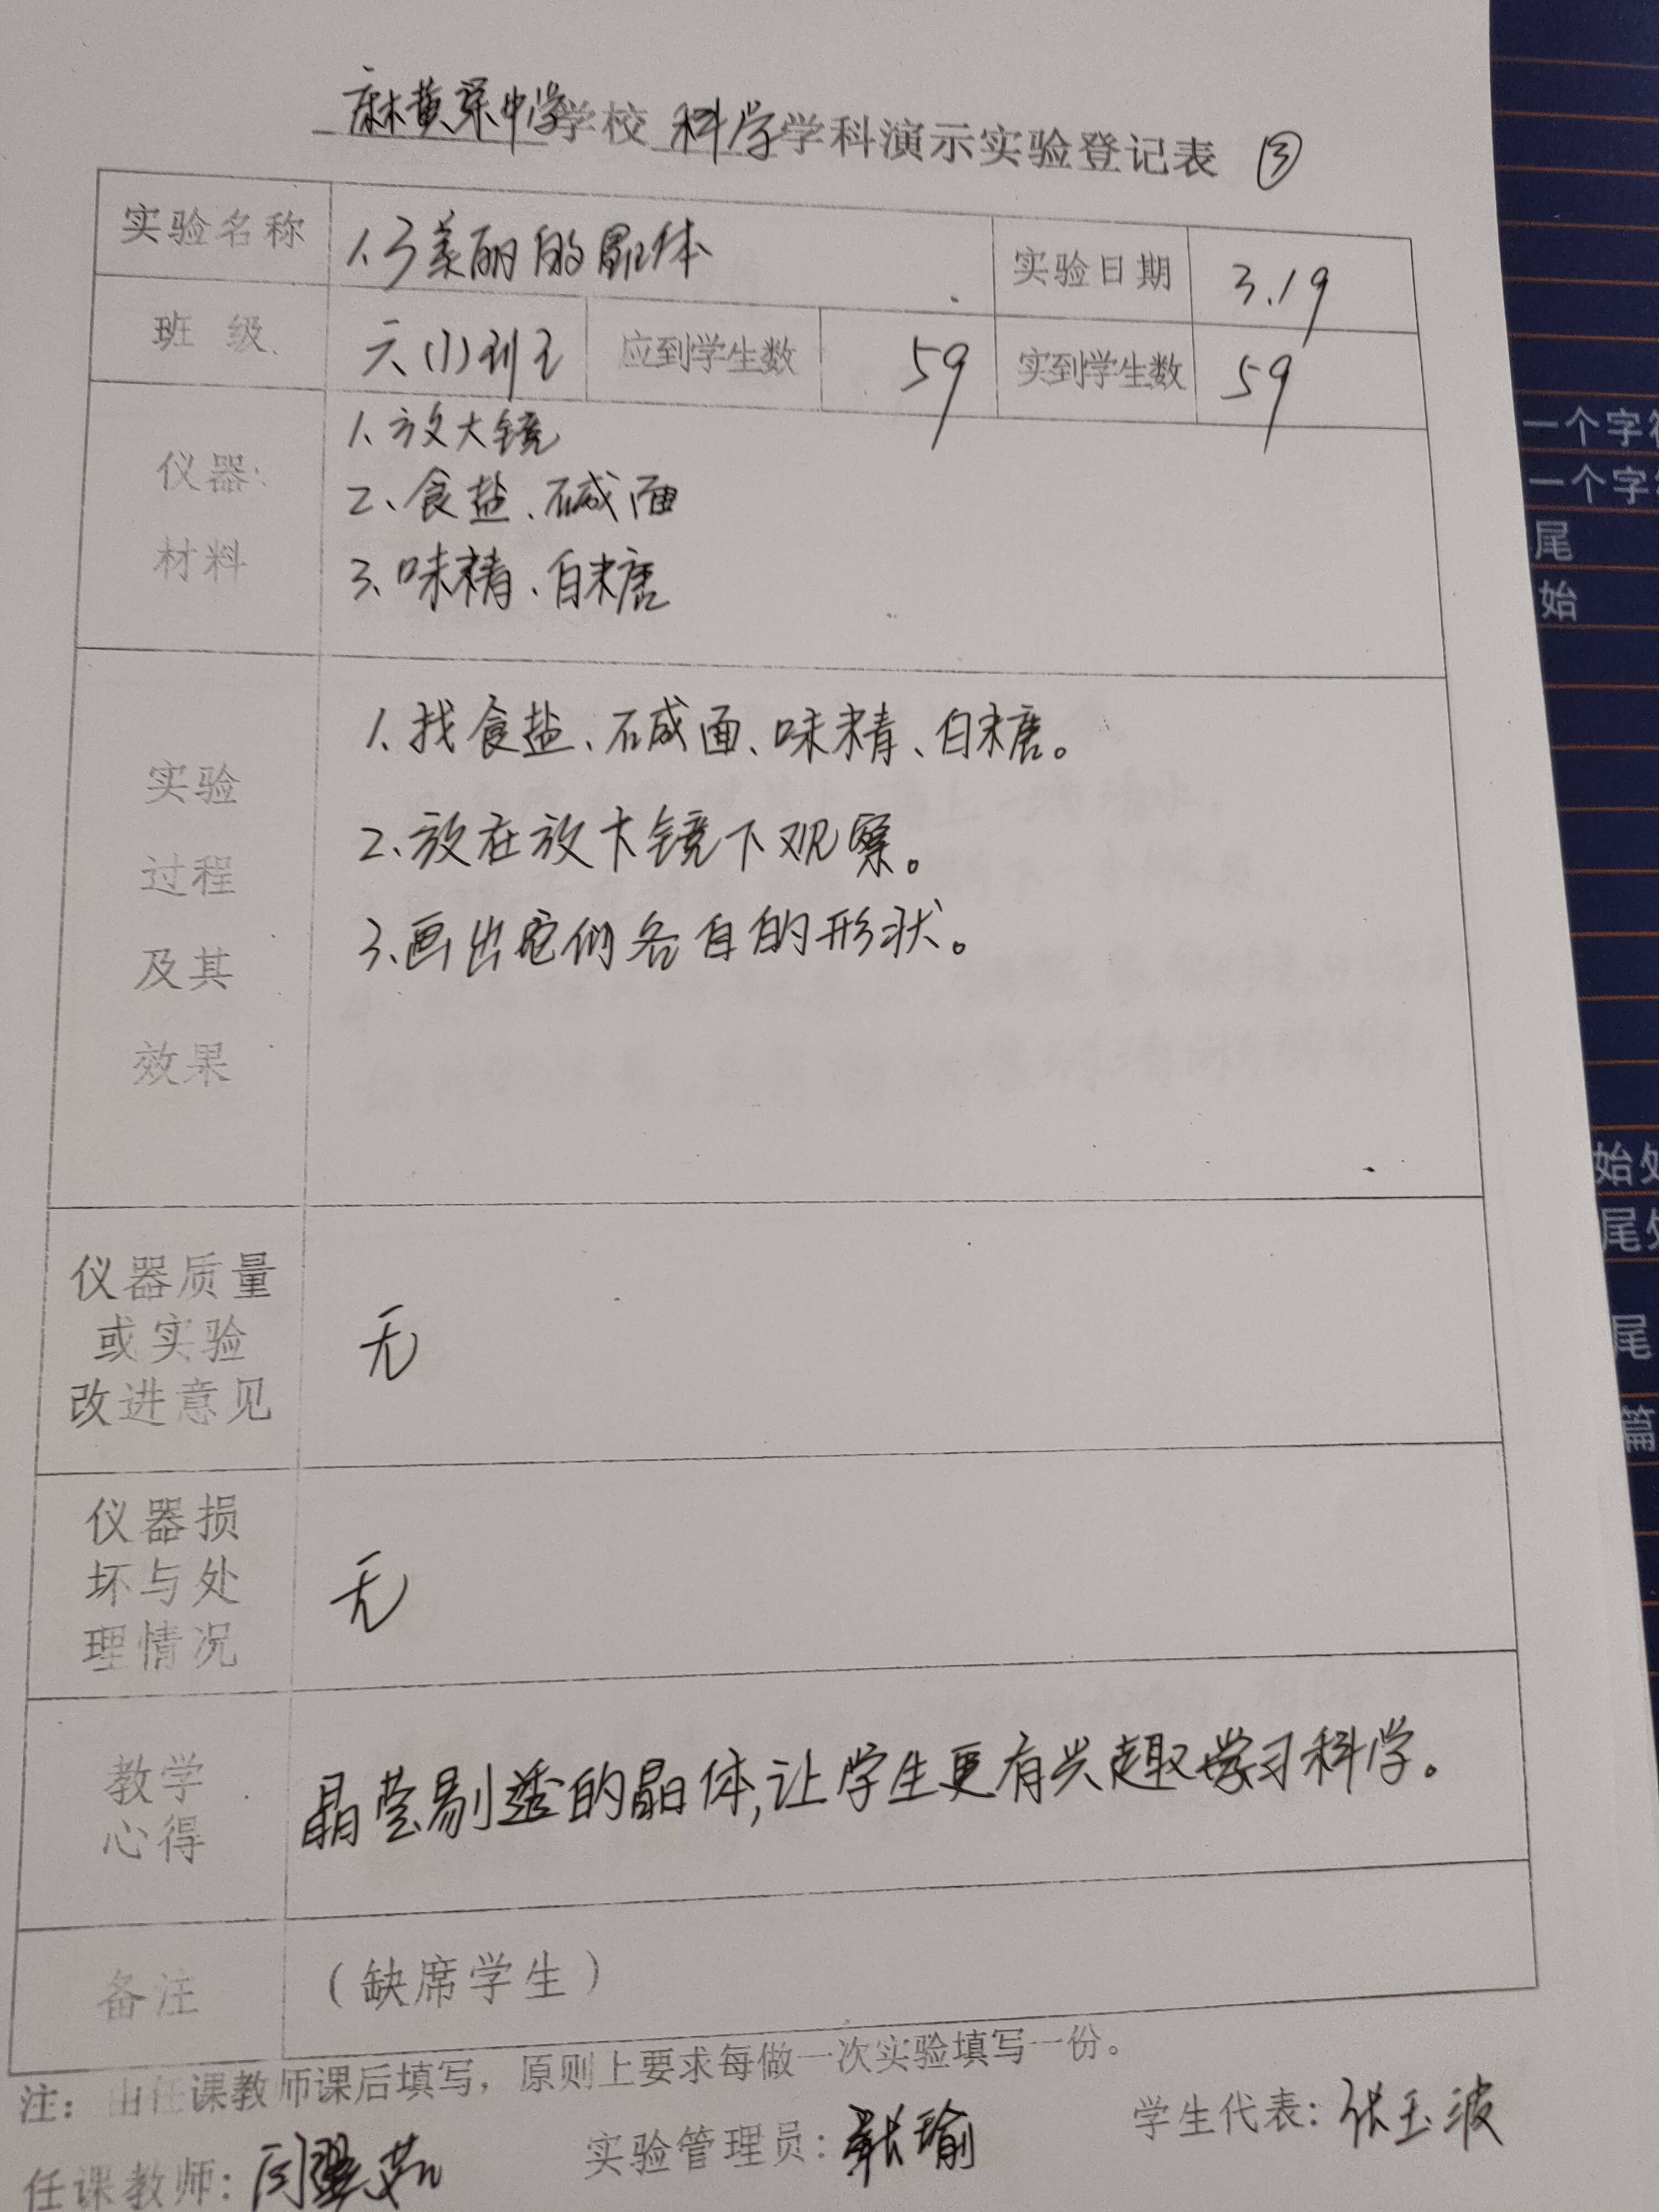 麻黄梁中学学校 科学学科演示实验登记表 ③
实验名称 1.3美丽的晶体 实验日期 3.19
班 级 六(1)班 应到学生数 59 实到学生数 59
仪器
材料
1、放大镜
2、食盐、碱面
3、味精、白糖
实验
过程
及其
效果
1、找食盐、碱面、味精、白糖。
2、放在放大镜下观察。
3、画出它们各自的形状。
仪器质量
或实验
改进意见
无
仪器损
坏与处
理情况
无
教学
心得
晶莹剔透的晶体,让学生更有兴趣学习科学。
备注 (缺席学生)
注: 由任课教师课后填写,原则上要求每做一次实验填写一份。
任课教师: 实验管理员: 学生代表: 张玉波
一个字
一个字
尾
始
始处
尾处
尾
篇